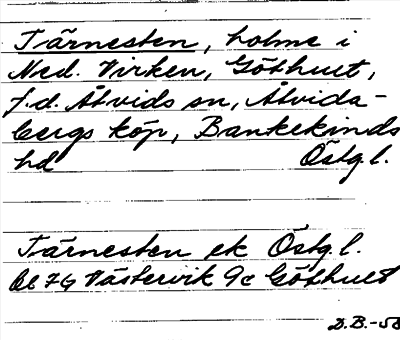 Tärnesten, holme i
Ned. Virken, Göthult,
f.d. Åtvids sn, Åtvida-
bergs köp, Bankekinds
hd Östg.l.
Tärnesten ek Östg.l.
bl 7G Västervik 9c Göthult
D.B.-58